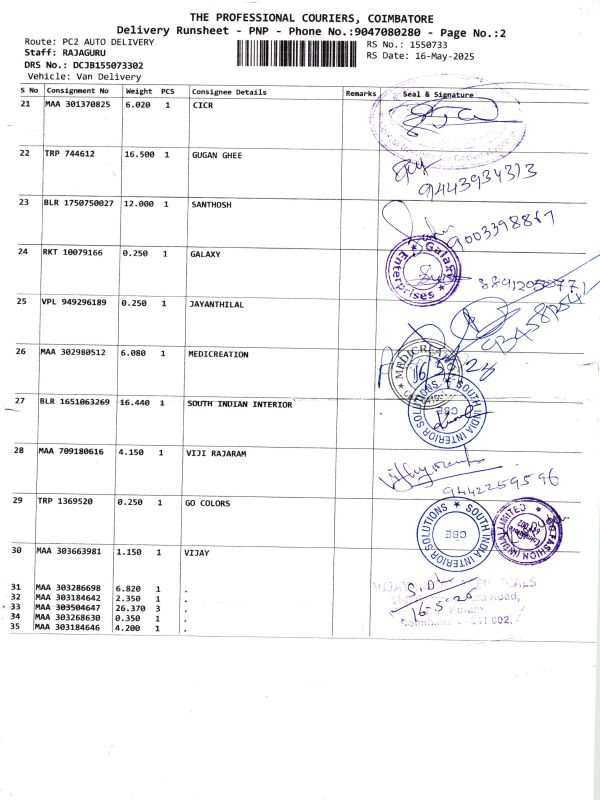 THE PROFESSIONAL COURIERS, COIMBATORE
Delivery Runsheet - PNP - Phone No.:9047080280 - Page No.:2
Route: PC2 AUTO DELIVERY
RS No.: 1550733
Staff: RAJAGURU
RS Date: 16-May-2025
DRS No.: DCJB155073302
Vehicle: Van Delivery
S No Consignment No Weight PCS Consignee Details Remarks Seal & Signature
21 MAA 301370825 6.020 1 CICR
22 TRP 744612 16.500 1 GUGAN GHEE
9443934313
23 BLR 1750750027 12.000 1 SANTHOSH
9003398867
24 RKT 10079166 0.250 1 GALAXY
Galaxy Enterprises
25 VPL 949296189 0.250 1 JAYANTHILAL
26 MAA 302980512 6.080 1 MEDICREATION
27 BLR 1651063269 16.440 1 SOUTH INDIAN INTERIOR
SOUTH INDIA INTERIOR SOLUTIONS
CBE
28 MAA 709180616 4.150 1 VIJI RAJARAM
9442259596
29 TRP 1369520 0.250 1 GO COLORS
SOUTH INDIA INTERIOR SOLUTIONS
CBE
GO FASHION (INDIA) LIMITED
30 MAA 303663981 1.150 1 VIJAY
31 MAA 303286698 6.820 1 .
32 MAA 303184642 2.350 1 .
33 MAA 303504647 26.370 3 .
34 MAA 303268630 0.350 1 .
35 MAA 303184646 4.200 1 .